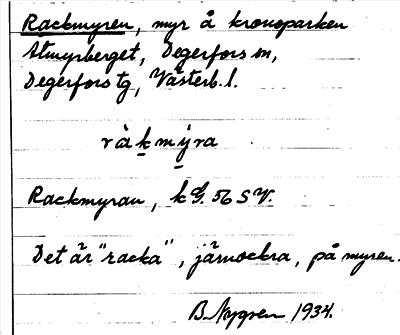 Rackmyren, myr å kronoparken
Åtmyrberget, Degerfors sn,
Degerfors tg, Västerb. l.
ràkmýra
Rackmyran, kG. 56 SV.
Det är "racka", järnockra, på myren.
B. Nygren 1934.